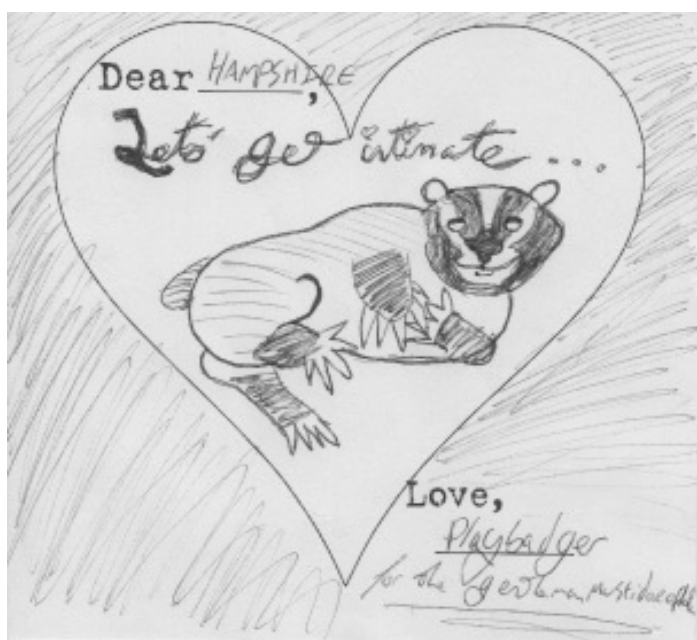 Dear HAMPSHIRE,
Lets' get intimate...
Love,
Playbadger
for the gentleman